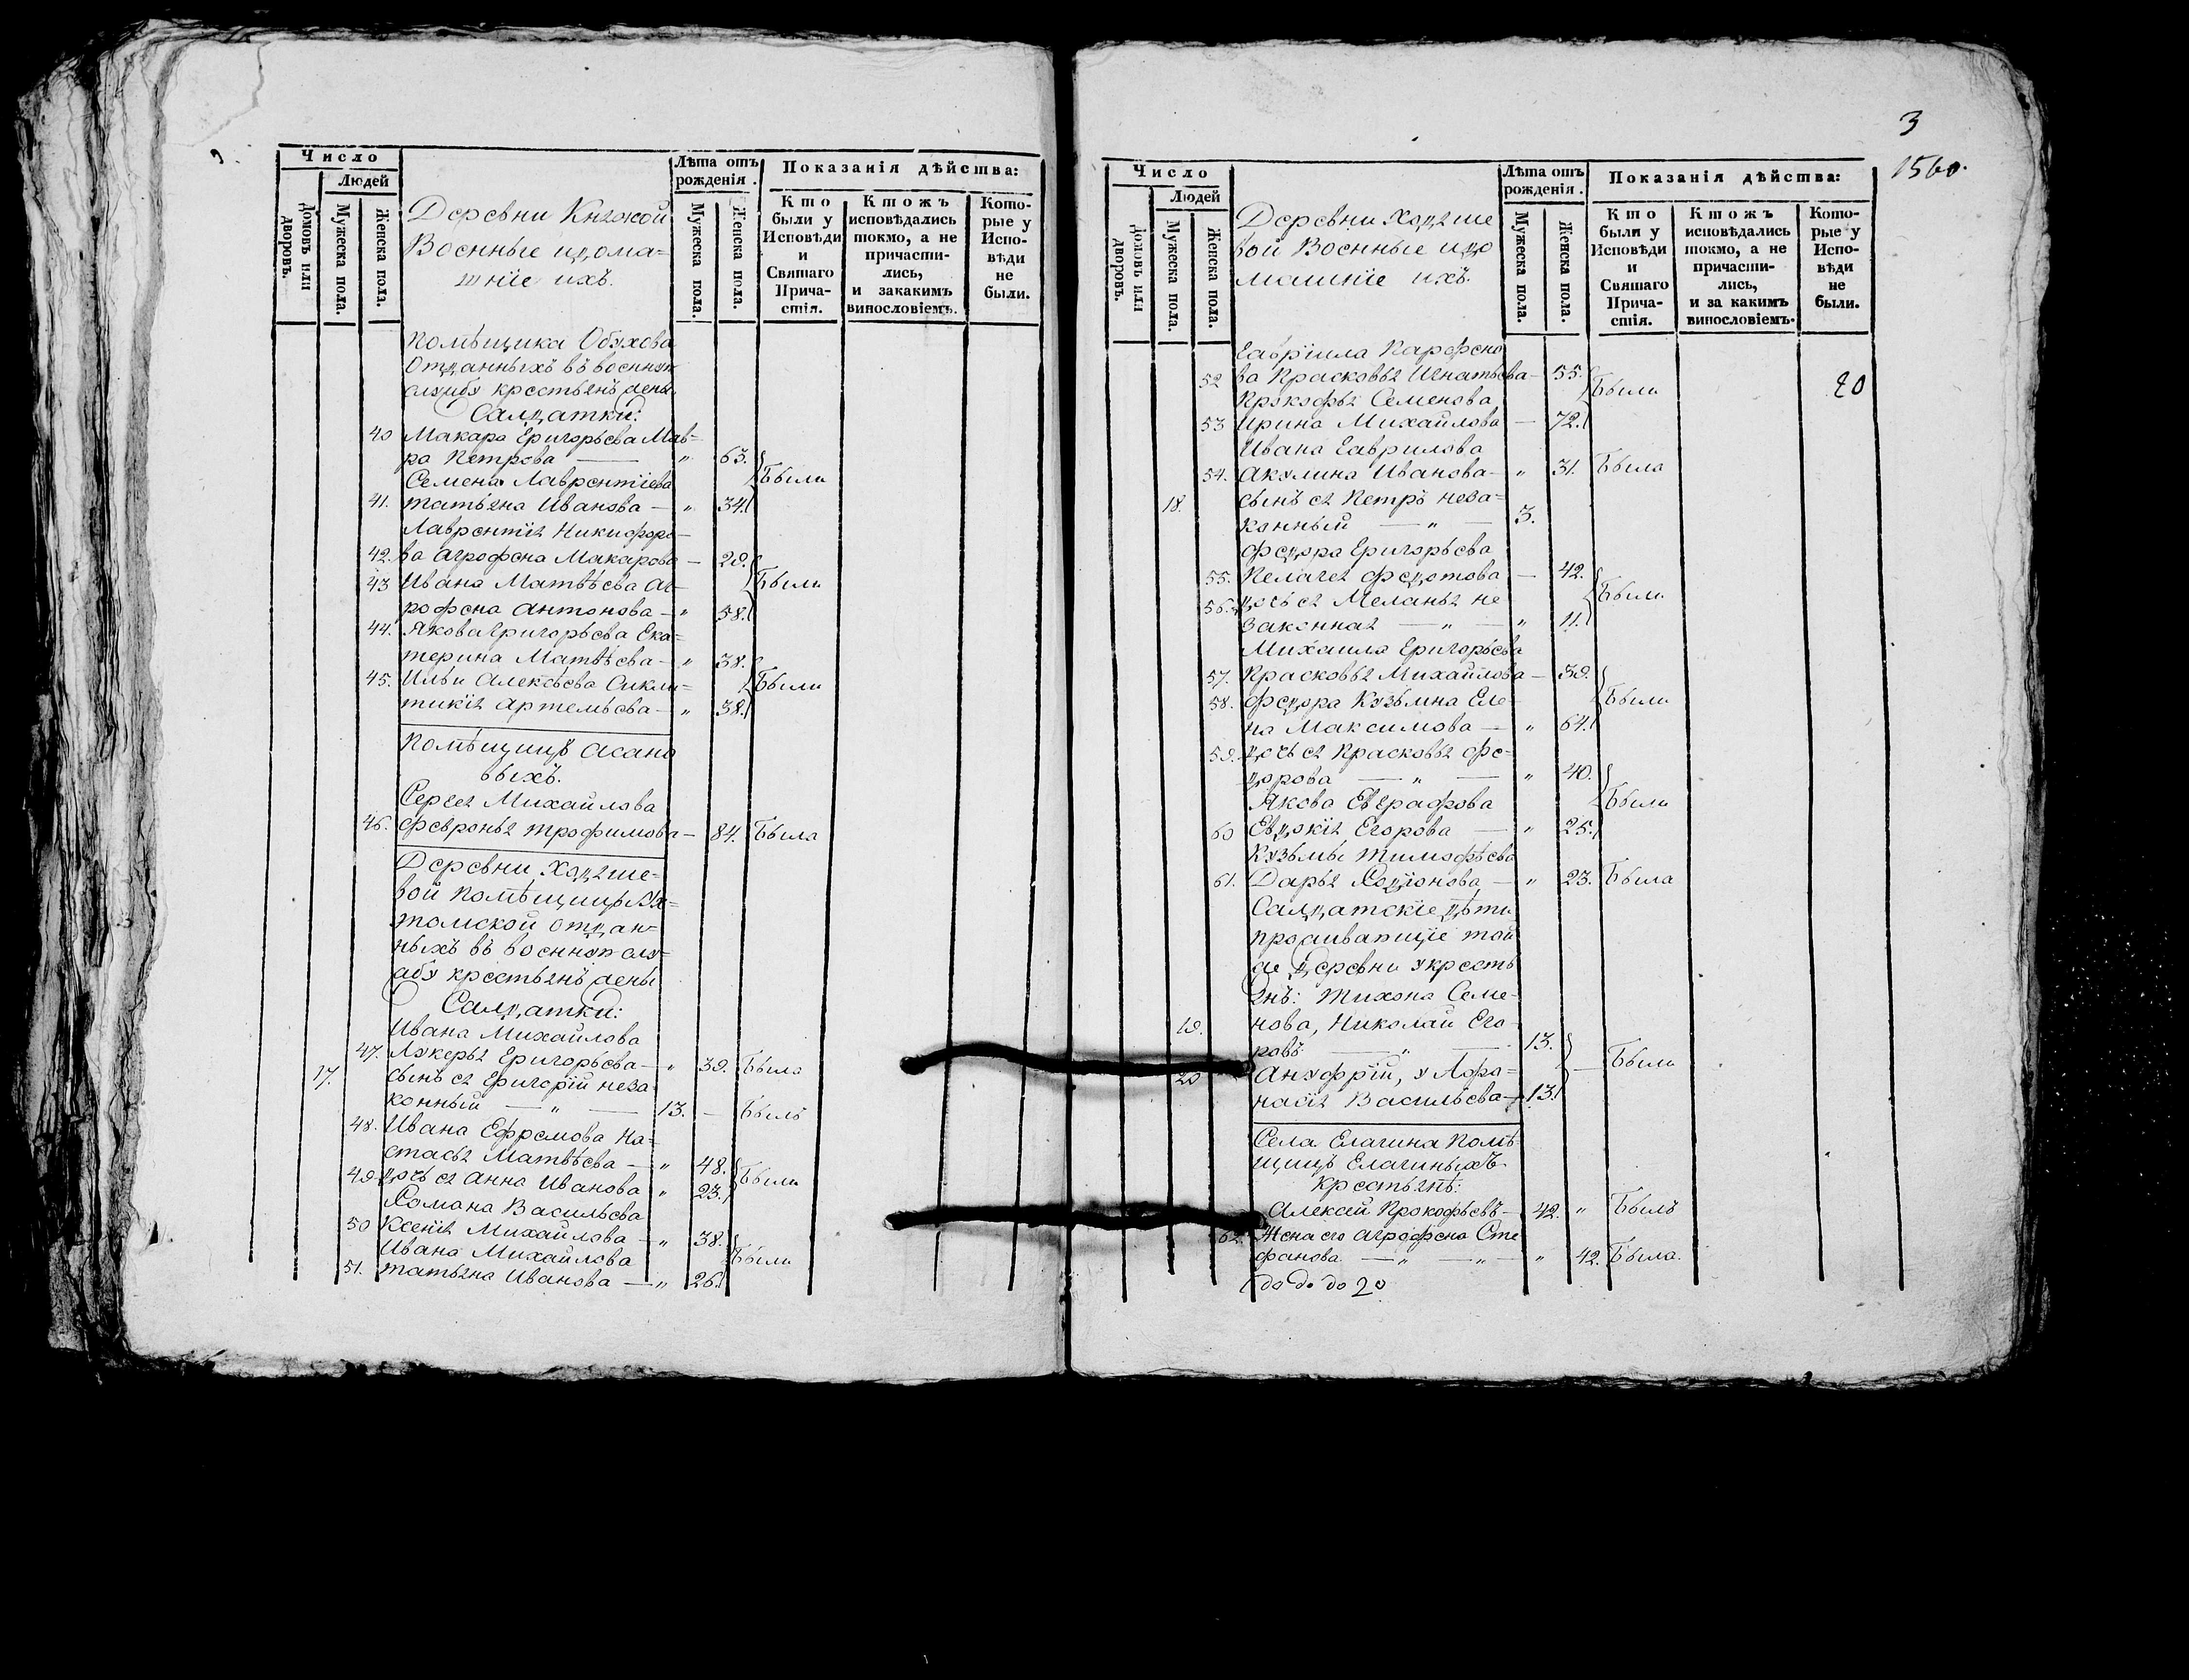 Число
Людей
Домовъ или дворовъ.
Мужеска пола.
Женска пола.
Деревни Княжой
Военные и дома-
шніе ихъ.
Лѣта отъ рожденія.
Мужеска пола.
Женска пола.
Показанія дѣйства:
Кто были у Исповѣди и Святаго Прича-стія.
Ктожъ исповѣдались токмо, а не причасти-лись, и закакимъ винословіемъ.
Кото-рые у Испо-вѣди не были.
Помѣщика Обухова
отданныхъ въ военную
службу крестьянъ жены
Салдатки:
40 Макара Григорьева Мав-
ра Петрова — " 63.
Семена Лаврентіева Были
41. Татьяна Иванова — " 34.
Лаврентія Никифоро-
42. ва Агрофена Макарова — 29.
43 Ивана Матвѣева Аг- Были
рофена Антонова — " 58.
44. Якова Григорьева Ека-
терина Матвѣева — " 38.
45. Ильи Алексѣева Сикли- Были
тикія Артемьева — " 38.
Помѣщицъ Асано
выхъ.
Сергея Михайлова
46. Февронья Трофимова — 84. Была
Деревни Ходяше-
вой Помѣщицы Ух-
томской отдан-
ныхъ въ военную слу-
жбу крестьянъ жены
Салдатки:
Ивана Михайлова
47. Лукерья Григорьева — " 39. Была
17. Сынъ ея Григорій неза
конный — " — 13. — Былъ
48. Ивана Ефремова На-
стасья Матвѣева — " 48.
49. дочь ея Анна Иванова " 23. Были
Романа Васильева
50 Ксенія Михайлова — " 38.
Ивана Михайлова Были
51. Татьяна Иванова — " 26.
3
1560.
Число
Людей
Домовъ или дворовъ.
Мужеска пола.
Женска пола.
Деревни Ходяше
вой Военные и до
машніе ихъ.
Лѣта отъ рожденія.
Мужеска пола.
Женска пола.
Показанія дѣйства:
Кто были у Исповѣди и Святаго Прича-стія.
Ктожъ исповѣдались токмо, а не причасти-лись, и за какимъ винословіемъ.
Кото-рые у Испо-вѣди не были.
Гавріила Парфено
52 ва Прасковья Игнатьева — 55.
Прокофья Семенова Были 20
53 Ирина Михайлова — 72.
Ивана Гаврилова
54. Акулина Иванова — " 31. Была
18. сынъ ея Петръ неза-
конный — " — 3.
Федора Григорьева
55. Пелагея Федотова — 42.
56. дочь ея Меланья не Были
законная — " — " 11.
Михаила Григорьева
57. Прасковья Михайлова — 39.
58. Федора Кузьмина Еле- Были
на Максимова — " 64.
59. дочь ея Прасковья Фе-
дорова — " — " 40.
Якова Евграфова Были
60 Евдокія Егорова — " 25.
Кузьмы Тимофѣева
61. Дарья Родіонова — " 23. Была
Салдатскіе дѣти
проживающіе той
же деревни у кресть
янъ: Тихона Семе-
19. нова, Николай Его-
ровъ — " — 13.
20 Ануфрій, у Афа- Были
насія Васильева — 13.
Села Елагина Помѣ-
щицъ Елагиныхъ
Крестьянѣ:
Алексѣй Прокофьевъ — 42. " Былъ
62. Жена его Агрофена Сте
фанова — " — " — " 42. Была.
до до до 20